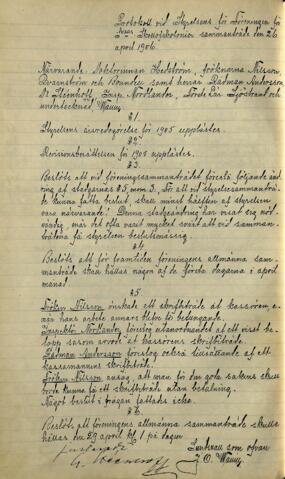 Protokoll vid Styrelsens för Föreningen för
Skollofskolonier sammanträde den 26
april 1906.
Närvarande: Doktorinnan Hedström, fröknarna Nilsson,
Svanström och samt herrar Rådman Andersson,
Dr Stenholt, Insp. Nortlander, Sjöstrand och
undertecknad Wawrn
§1.
Styrelsens årsredogörelse för 1905 upplästes.
§2.
Revisionsberättelsen för 1905 upplästes.
§3.
Beslöts att vid föreningssammanträdet föreslå följande änd-
ring af stadgarnas §5, mom 3. För att vid styrelsesammanträ-
de kunna fatta beslut skall minst hälften af styrelsen
vara närvarande! Denna stadgeändring har visat sig nöd-
vändig, när det ofta varit mycket svårt att vid samman-
trädena få styrelsen beslutmässig.
§4.
Beslöts att för framtiden föreningens allmänna sam-
manträde skall hållas någon af de första dagarna i april
månad.
§5.
Fröken Nilsson önskade ett skriftbiträde åt kassören, e-
mer hans arbete annars blefve så betungande.
Inspektör Nortlander föreslog utanordnandet af ett visst be-
lopp såsom arvode åt kassörens skriftbiträde.
Rådman Andersson föreslog också tillsättande af ett
kassamannens skriftbiträde.
Fröken Nilsson ansåg att man för den goda sakens skull
borde kunna få ett skriftbiträde utan betalning.
Något beslut i frågan fattades icke.
§6.
Beslöts att föreningens allmänna sammanträde skulle
hållas den 29 april kl. 1 på dagen.
Justerades
Lunkenau som ofvan
J. O. Wawrn